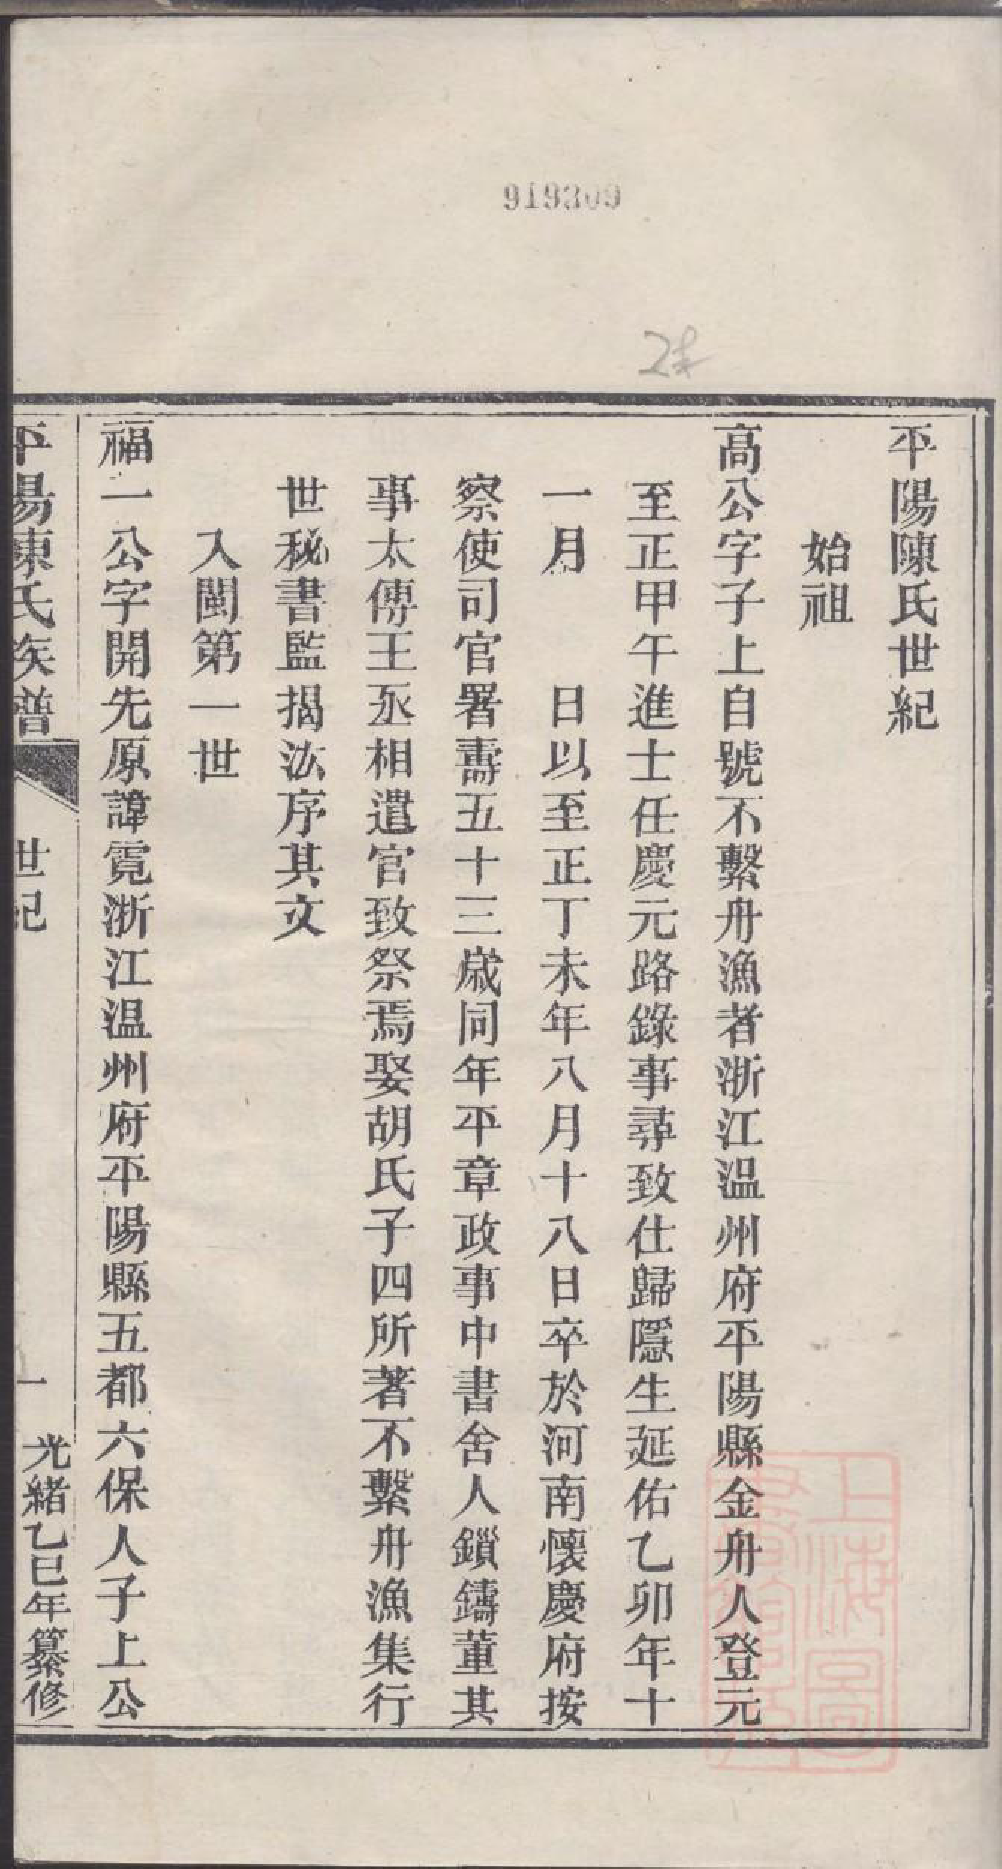 919309
平陽陳氏世紀
始祖
高公字子上自號不繫舟漁者浙江温州府平陽縣金舟人登元
至正甲午進士任慶元路錄事尋致仕歸隱生延佑乙卯年十
一月 日以至正丁未年八月十八日卒於河南懷慶府按
察使司官署壽五十三歲同年平章政事中書舍人鎖鑄董其
事太傅王丞相遣官致祭焉娶胡氏子四所著不繫舟漁集行
世秘書監揭汯序其文
入閩第一世
福一公字開先原諱霓浙江温州府平陽縣五都六保人子上公
平陽陳氏族譜 世紀 一 光緒乙巳年纂修
上海圖書館藏